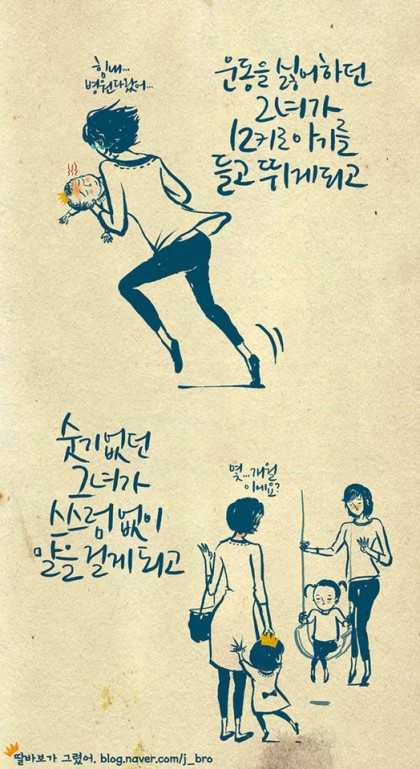 힘내...
병원 다왔어...
운동을 싫어하던
그녀가
12키로 아기를
들고 뛰게되고
숫기없던
그녀가
스스럼없이
말을 걸게되고
몇...개월
이에요?
딸바보가 그렸어. blog.naver.com/j_bro